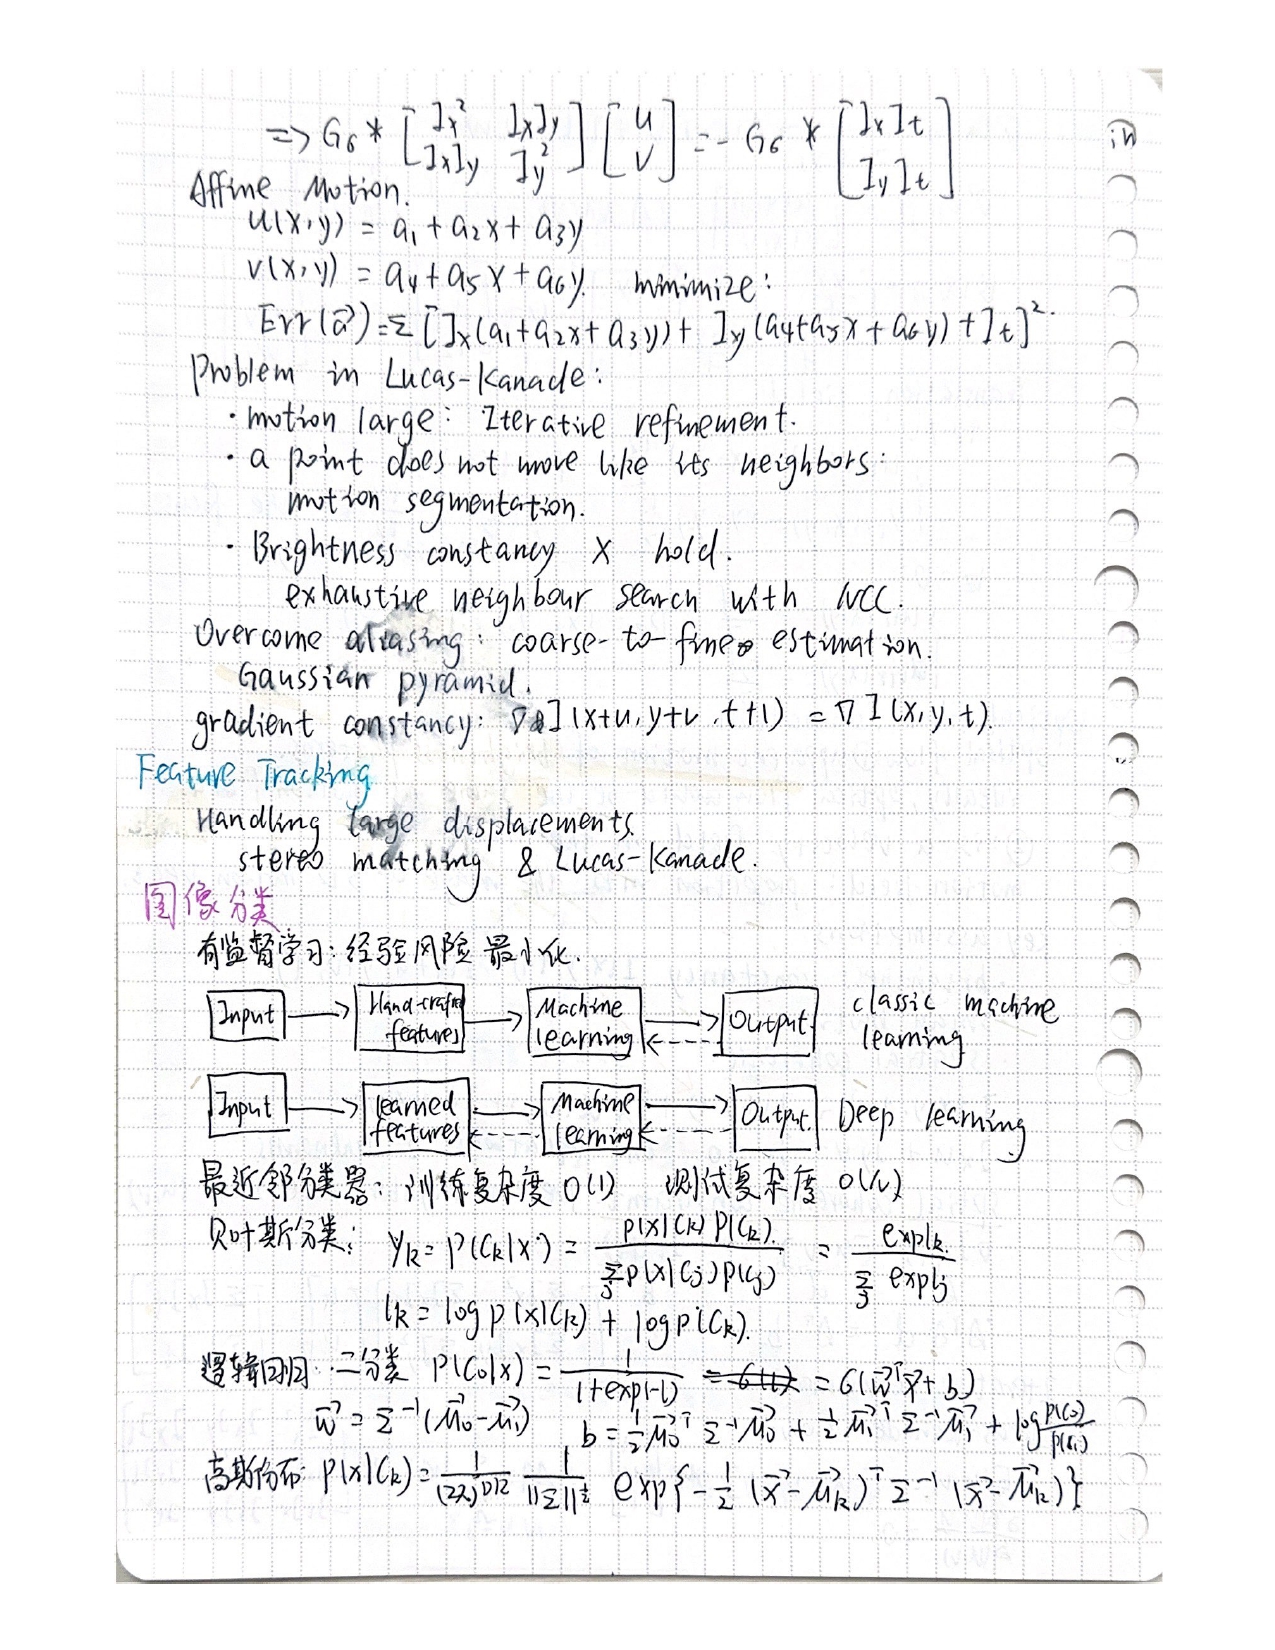 => Gσ * [Ix² IxIy; IxIy Iy²] [u; v] = - Gσ * [IxIt; IyIt]
Affine Motion.
u(x,y) = a₁ + a₂x + a₃y
v(x,y) = a₄ + a₅x + a₆y. minimize:
Err(a⃗) = Σ [Ix(a₁+a₂x+a₃y) + Iy(a₄+a₅x+a₆y) + It]².
Problem in Lucas-Kanade:
· motion large: Iterative refinement.
· a point does not move like its neighbors:
motion segmentation.
· Brightness constancy X hold.
exhaustive neighbour search with NCC.
Overcome aliasing: coarse-to-fine estimation.
Gaussian pyramid.
gradient constancy: ∇I(x+u, y+v, t+1) = ∇I(x,y,t).
Feature Tracking
Handling large displacements.
stereo matching & Lucas-Kanade.
图像分类
有监督学习: 经验风险最小化.
Input → Hand-crafted features → Machine learning → Output. classic machine learning
Input → learned features → Machine learning → Output. Deep learning
最近邻分类器: 训练复杂度 O(1) 测试复杂度 O(N)
贝叶斯分类: yk = p(Ck|x) = p(x|Ck)p(Ck) / Σj p(x|Cj)p(Cj) = exp lk / Σj exp lj
lk = log p(x|Ck) + log p(Ck).
逻辑回归: 二分类 P(C₀|x) = 1/(1+exp(-l)) = σ(w⃗ᵀx⃗ + b)
w⃗ = Σ⁻¹(μ⃗₀ - μ⃗₁) b = ½μ⃗₀ᵀΣ⁻¹μ⃗₀ + ½μ⃗₁ᵀΣ⁻¹μ⃗₁ + log p(C₀)/p(C₁)
高斯分布: p(x|Ck) = 1/(2π)^{D/2} 1/||Σ||^{½} exp{-½(x⃗-μ⃗k)ᵀΣ⁻¹(x⃗-μ⃗k)}